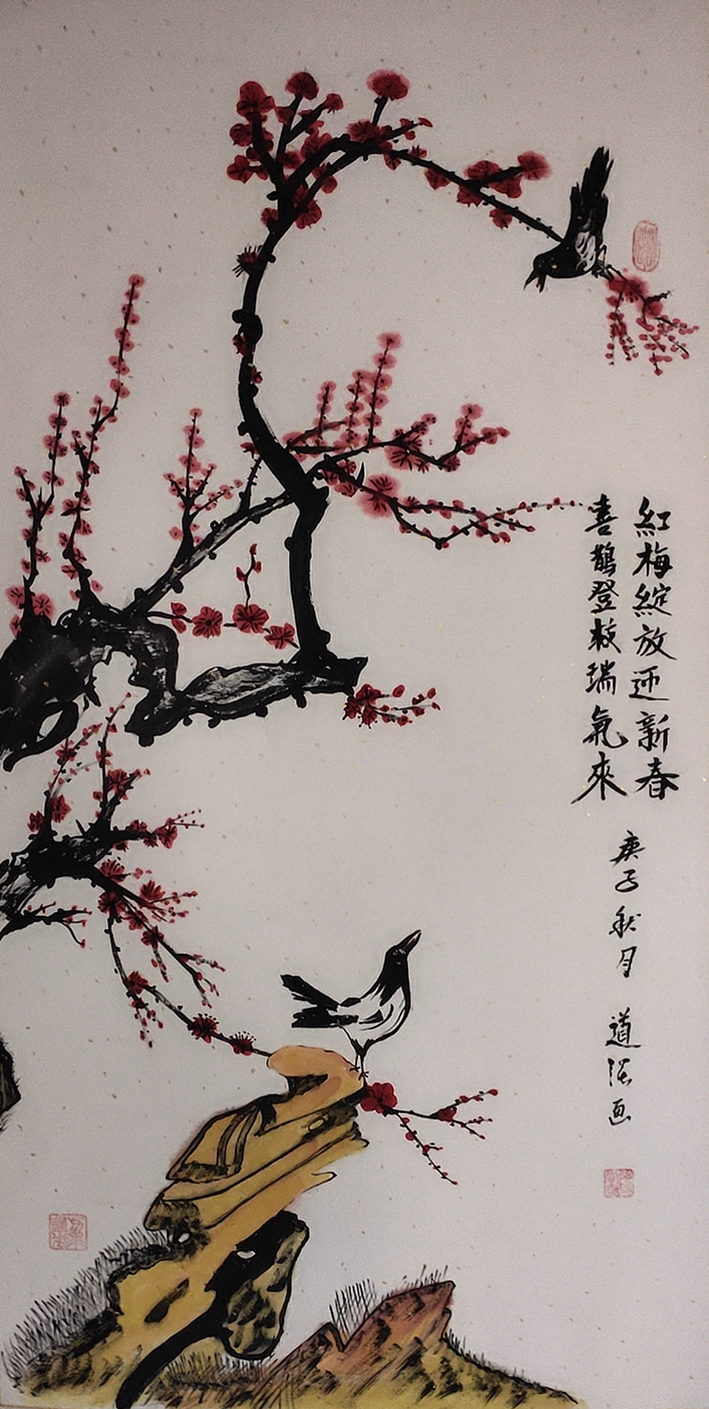 紅梅綻放迎新春
喜鵲登枝瑞氣來
庚子秋月
道强画